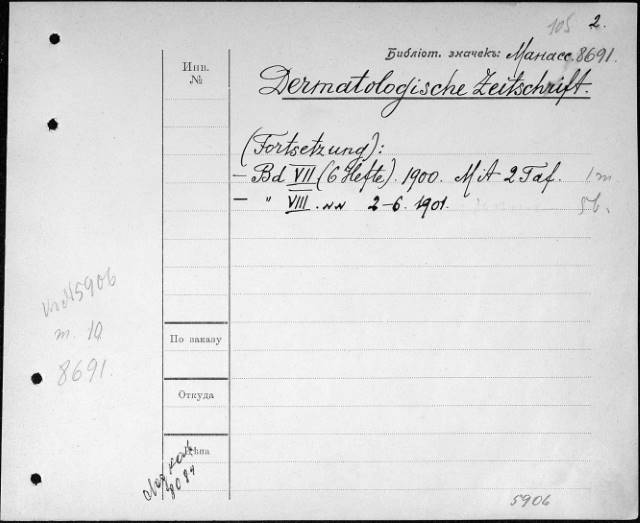 105 2.
Библіот. значекъ: Манасс. 8691.
Инв.
№
Dermatologische Zeitschrift.
(Fortsetzung):
— Bd VII (6 Hefte). 1900. Mit 2 Taf. 1 т
— " VIII. №№ 2–6. 1901. 5 б.
5906
т. 10
8691.
По заказу
Откуда
Цѣна
8084
5906